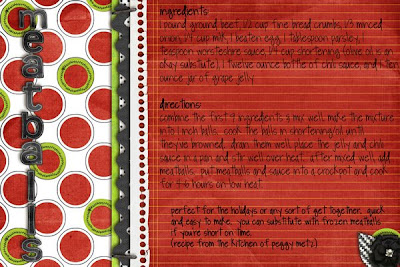 meatballs
ingredients:
1 pound ground beef, 1/2 cup fine bread crumbs, 1/3 minced
onion, 1/4 cup milk, 1 beaten egg, 1 tablespoon parsley, 1
teaspoon worsteshire sauce, 1/4 cup shortening (olive oil is an
okay substitute), 1 twelve ounce bottle of chili sauce, and 1 ten
ounce jar of grape jelly.
directions:
combine the first 9 ingredients & mix well. make the mixture
into 1 inch balls. cook the balls in shortening/oil until
they're browned. drain them well. place the jelly and chili
sauce in a pan and stir well over heat. after mixed well, add
meatballs. put meatballs and sauce into a crockpot and cook
for 4-6 hours on low heat.
perfect for the holidays or any sort of get together. quick
and easy to make. you can substitute with frozen meatballs
if you're short on time.
(recipe from the kitchen of peggy metz)